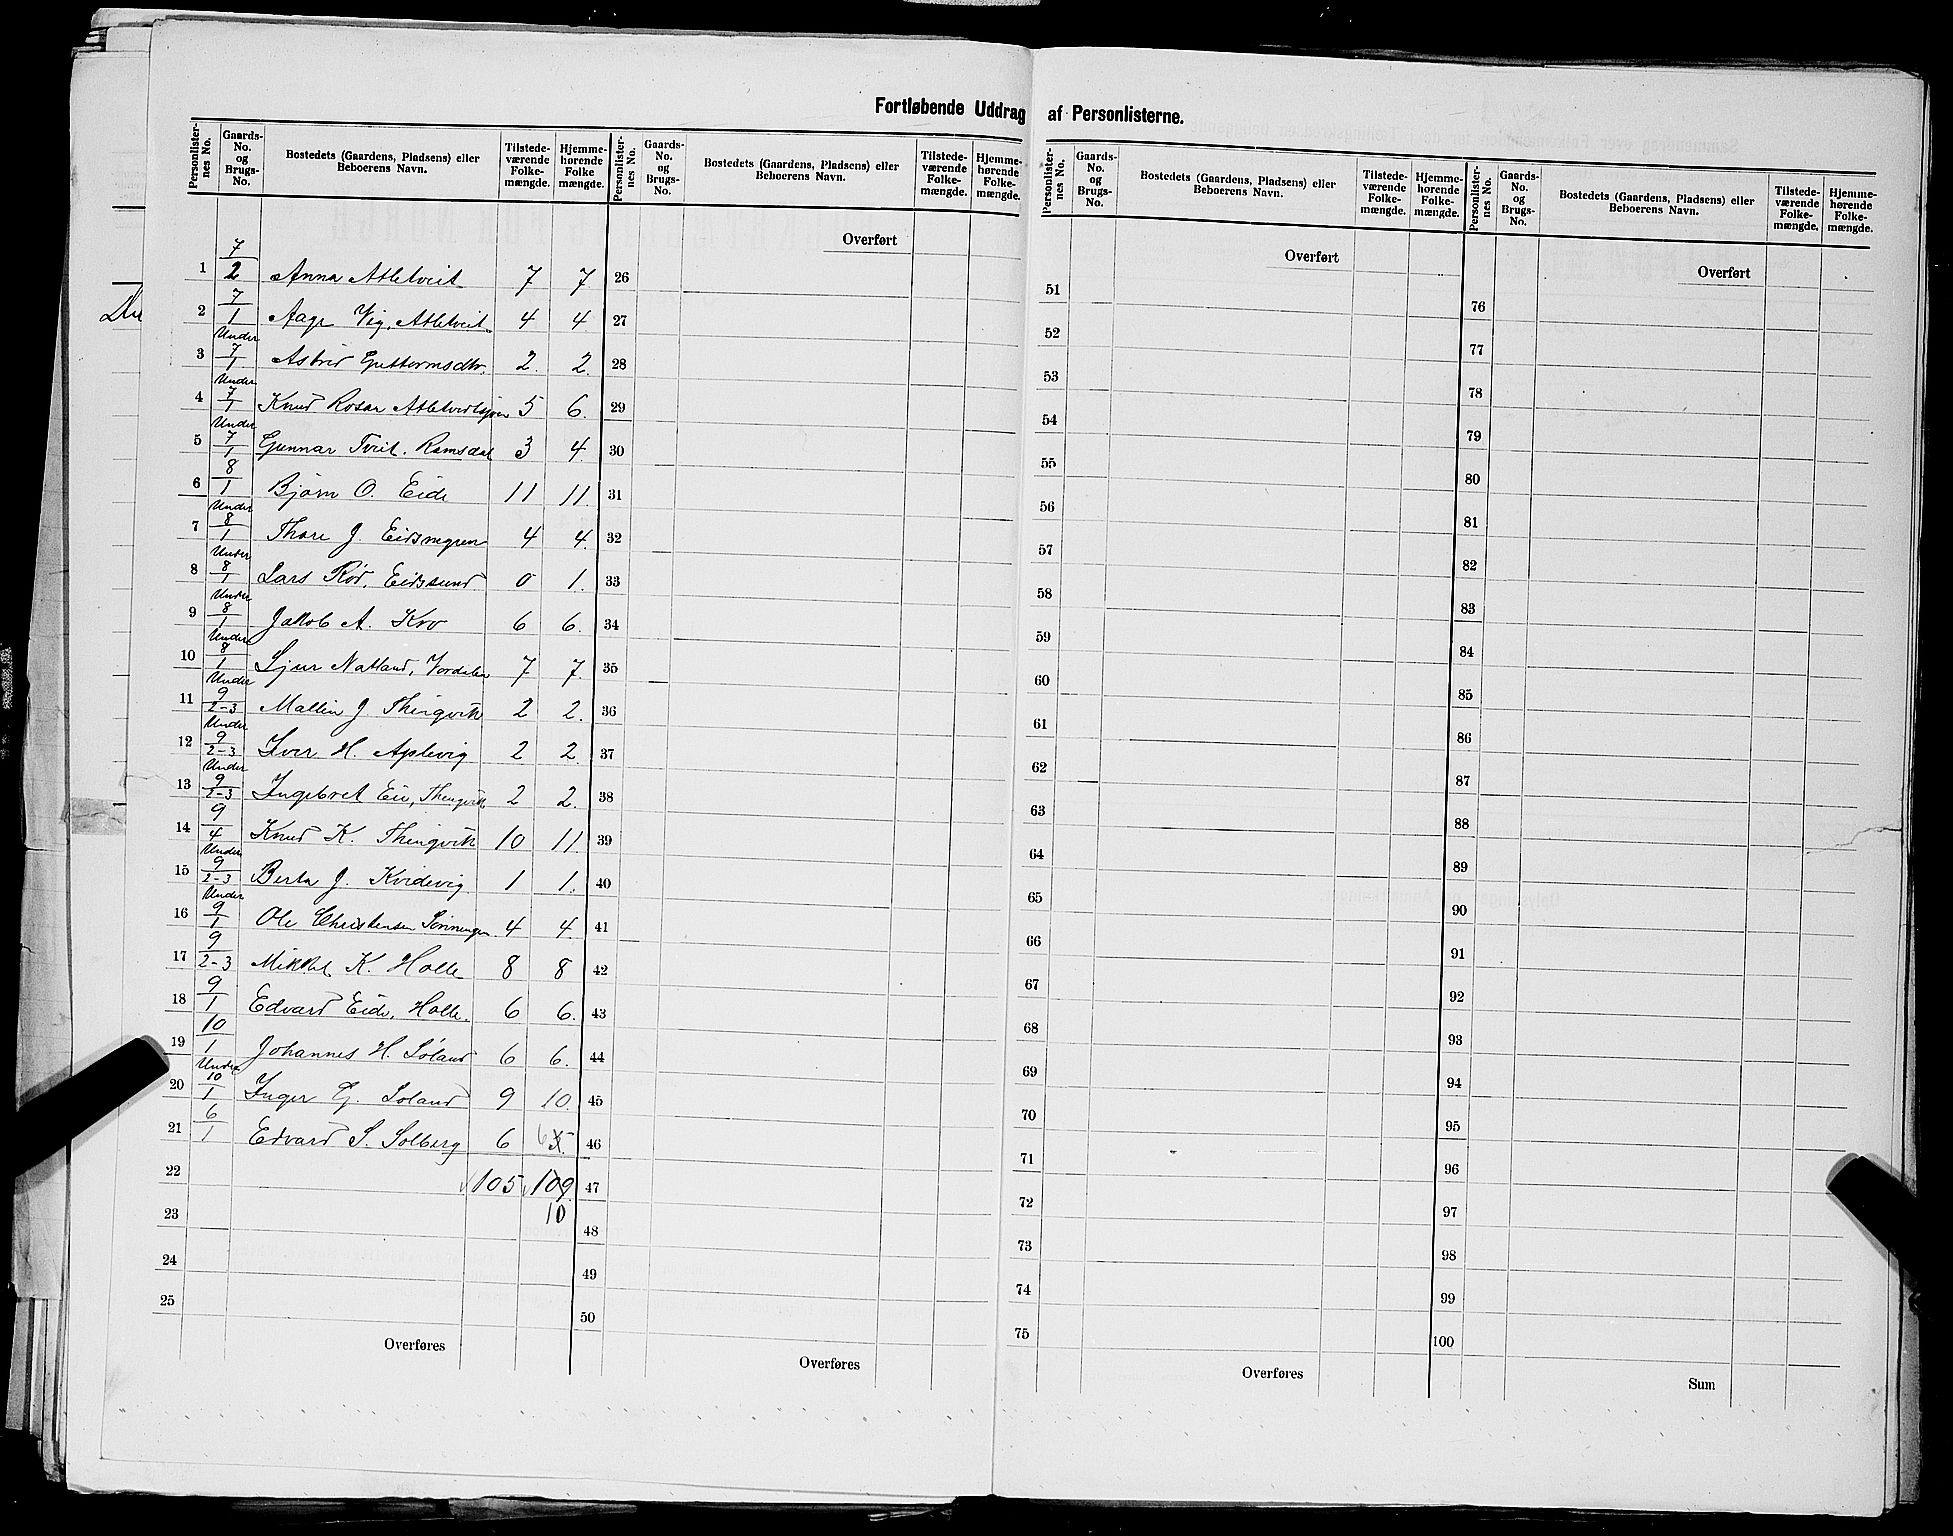 Fortløbende Uddrag af Personlisterne.
Personlisternes No. Gaards-No. og Brugs-No. Bostedets (Gaardens, Pladsens) eller Beboerens Navn. Tilstedeværende Folkemængde. Hjemmehørende Folkemængde.
Personlisternes No. Gaards-No. og Brugs-No. Bostedets (Gaardens, Pladsens) eller Beboerens Navn. Tilstedeværende Folkemængde. Hjemmehørende Folkemængde.
Personlisternes No. Gaards-No. og Brugs-No. Bostedets (Gaardens, Pladsens) eller Beboerens Navn. Tilstedeværende Folkemængde. Hjemmehørende Folkemængde.
Personlisternes No. Gaards-No. og Brugs-No. Bostedets (Gaardens, Pladsens) eller Beboerens Navn. Tilstedeværende Folkemængde. Hjemmehørende Folkemængde.
1 7/2 Anna Atletveit 7 7
2 7/1 Aage Vig, Atletveit 4 4
3 Under 7/1 Astrid Guttormsdtr. 2. 2.
4 Under 7/1 Knud Rosar 5 6.
5 Under 7/1 Gunnar Tveit. Ramsdal 3 4.
6 8/1 Bjørn O. Eide 11 11.
7 Under 8/1 Thore J. 4 4.
8 Under 8/1 Lars Rød, Eidssund 0 1.
9 Under 8/1 Jakob A. Kro 6 6.
10 Under 8/1 Sjur Natland, 7 7.
11 Under 9/2-3 Mallin J. Thengvik 2 2.
12 Under 9/2-3 Iver H. Aplevig 2 2.
13 Under 9/2-3 Ingebret Eie, Thengvik 2 2.
14 9/4 Knud K. Thengvik 10 11.
15 Under 9/2-3 Berta J. Kvidevig. 1 1.
16 Under 9/1 Ole Christensen 4 4.
17 9/2-3 Mikkel K. Halle 8 8
18 9/1 Edvard Eide, Halle. 6 6.
19 10/1 Johannes H. Søland 6 6.
20 Under 10/1 Inger G. Søland 9 10.
21 6/1 Edvard S. Solberg 6 6 5.
22 105 109.
23 10
24
25
Overføres
Overført
26
27
28
29
30
31
32
33
34
35
36
37
38
39
40
41
42
43
44
45
46
47
48
49
50
Overføres
Overført
51
52
53
54
55
56
57
58
59
60
61
62
63
64
65
66
67
68
69
70
71
72
73
74
75
Overføres
Overført
76
77
78
79
80
81
82
83
84
85
86
87
88
89
90
91
92
93
94
95
96
97
98
99
100
Sum